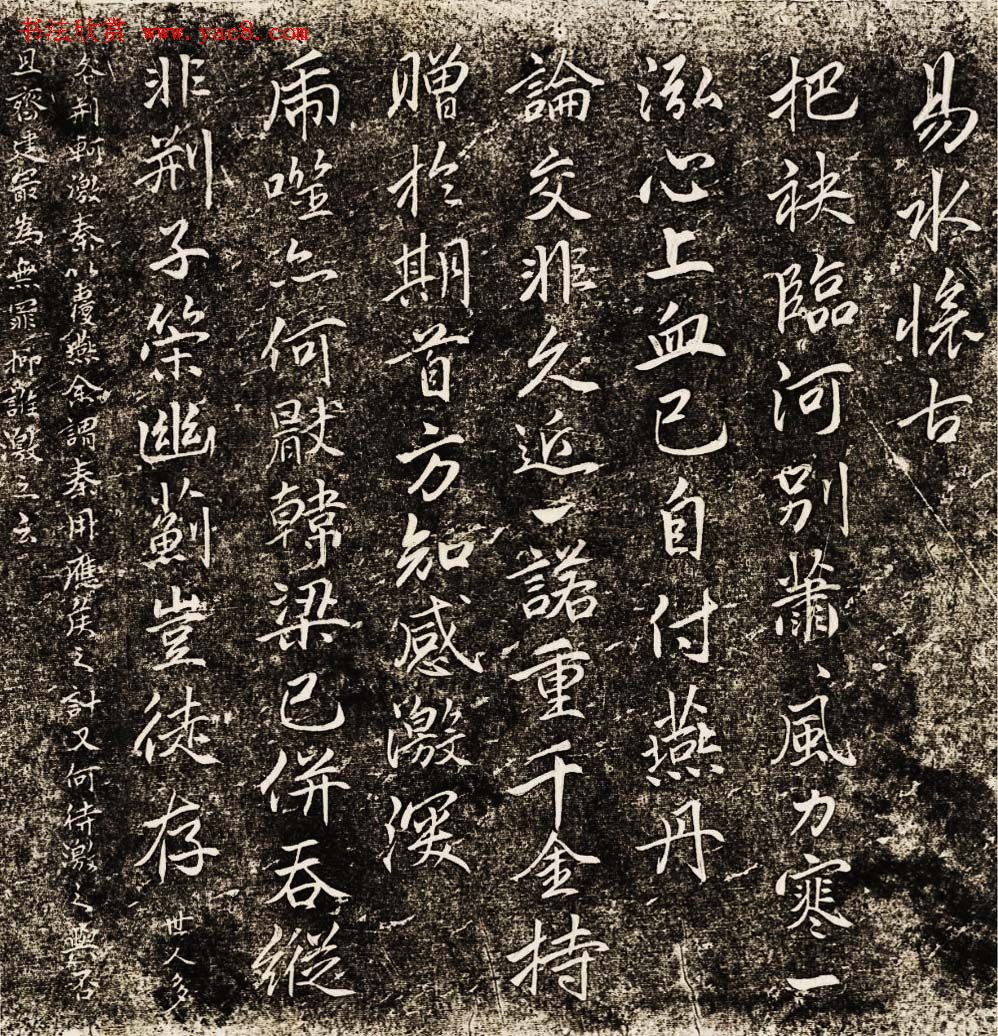 书法欣赏 www.yac8.com
易水懷古
把袂臨河別蕭、風力寒一
泓心上血已自付燕丹
論交非久近一諾重千金持
贈於期首方知感激深
虎噬亦何厭韓梁已併吞縱
非荊子策幽薊豈徒存
世人多
咎荊軻激秦以覆燕余謂秦用應矦之計又何待激之與否
且齊建最為無罪抑誰激之云